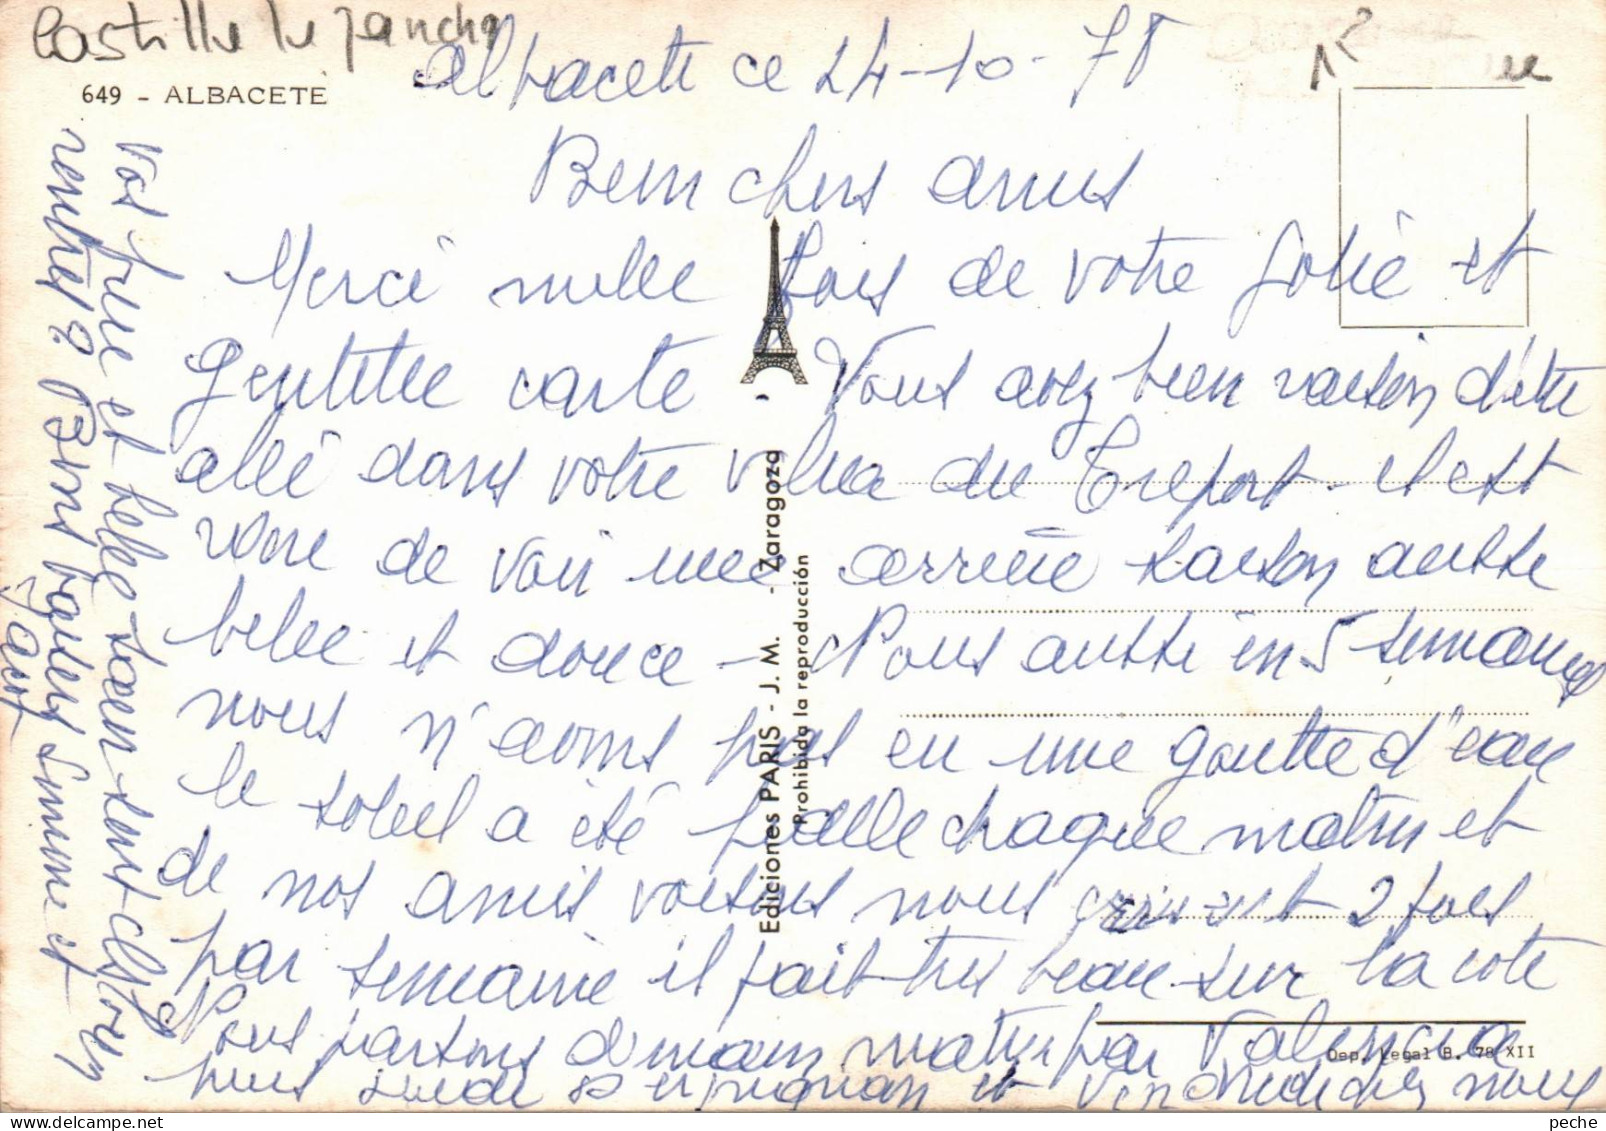 Castille la Mancha
649 - ALBACETE
Albacete ce 24-10-78
Bien chers amis
Merci mille fois de votre jolie et
gentille carte - Vous avez bien raison d'être
allé dans votre villa du Treport - il est
rare de voir une arrière saison aussi
belle et douce - Nous aussi en 5 semaines
nous n'avons pas eu une goutte d'eau
le soleil a été pâle chaque matin et
de nos amis voisins nous écrivent 2 fois
par semaine il fait très beau sur la cote
Nous partons demain matin par Valencia
puis Perpignan et Vendredi nous
Vos frère et belle-soeur sont
rentrés ? Bons baisers Simone et
Jacot
Ediciones PARIS - J. M. - Zaragoza
Prohibida la reproducción
Dep. Legal B. 78 XII
peche